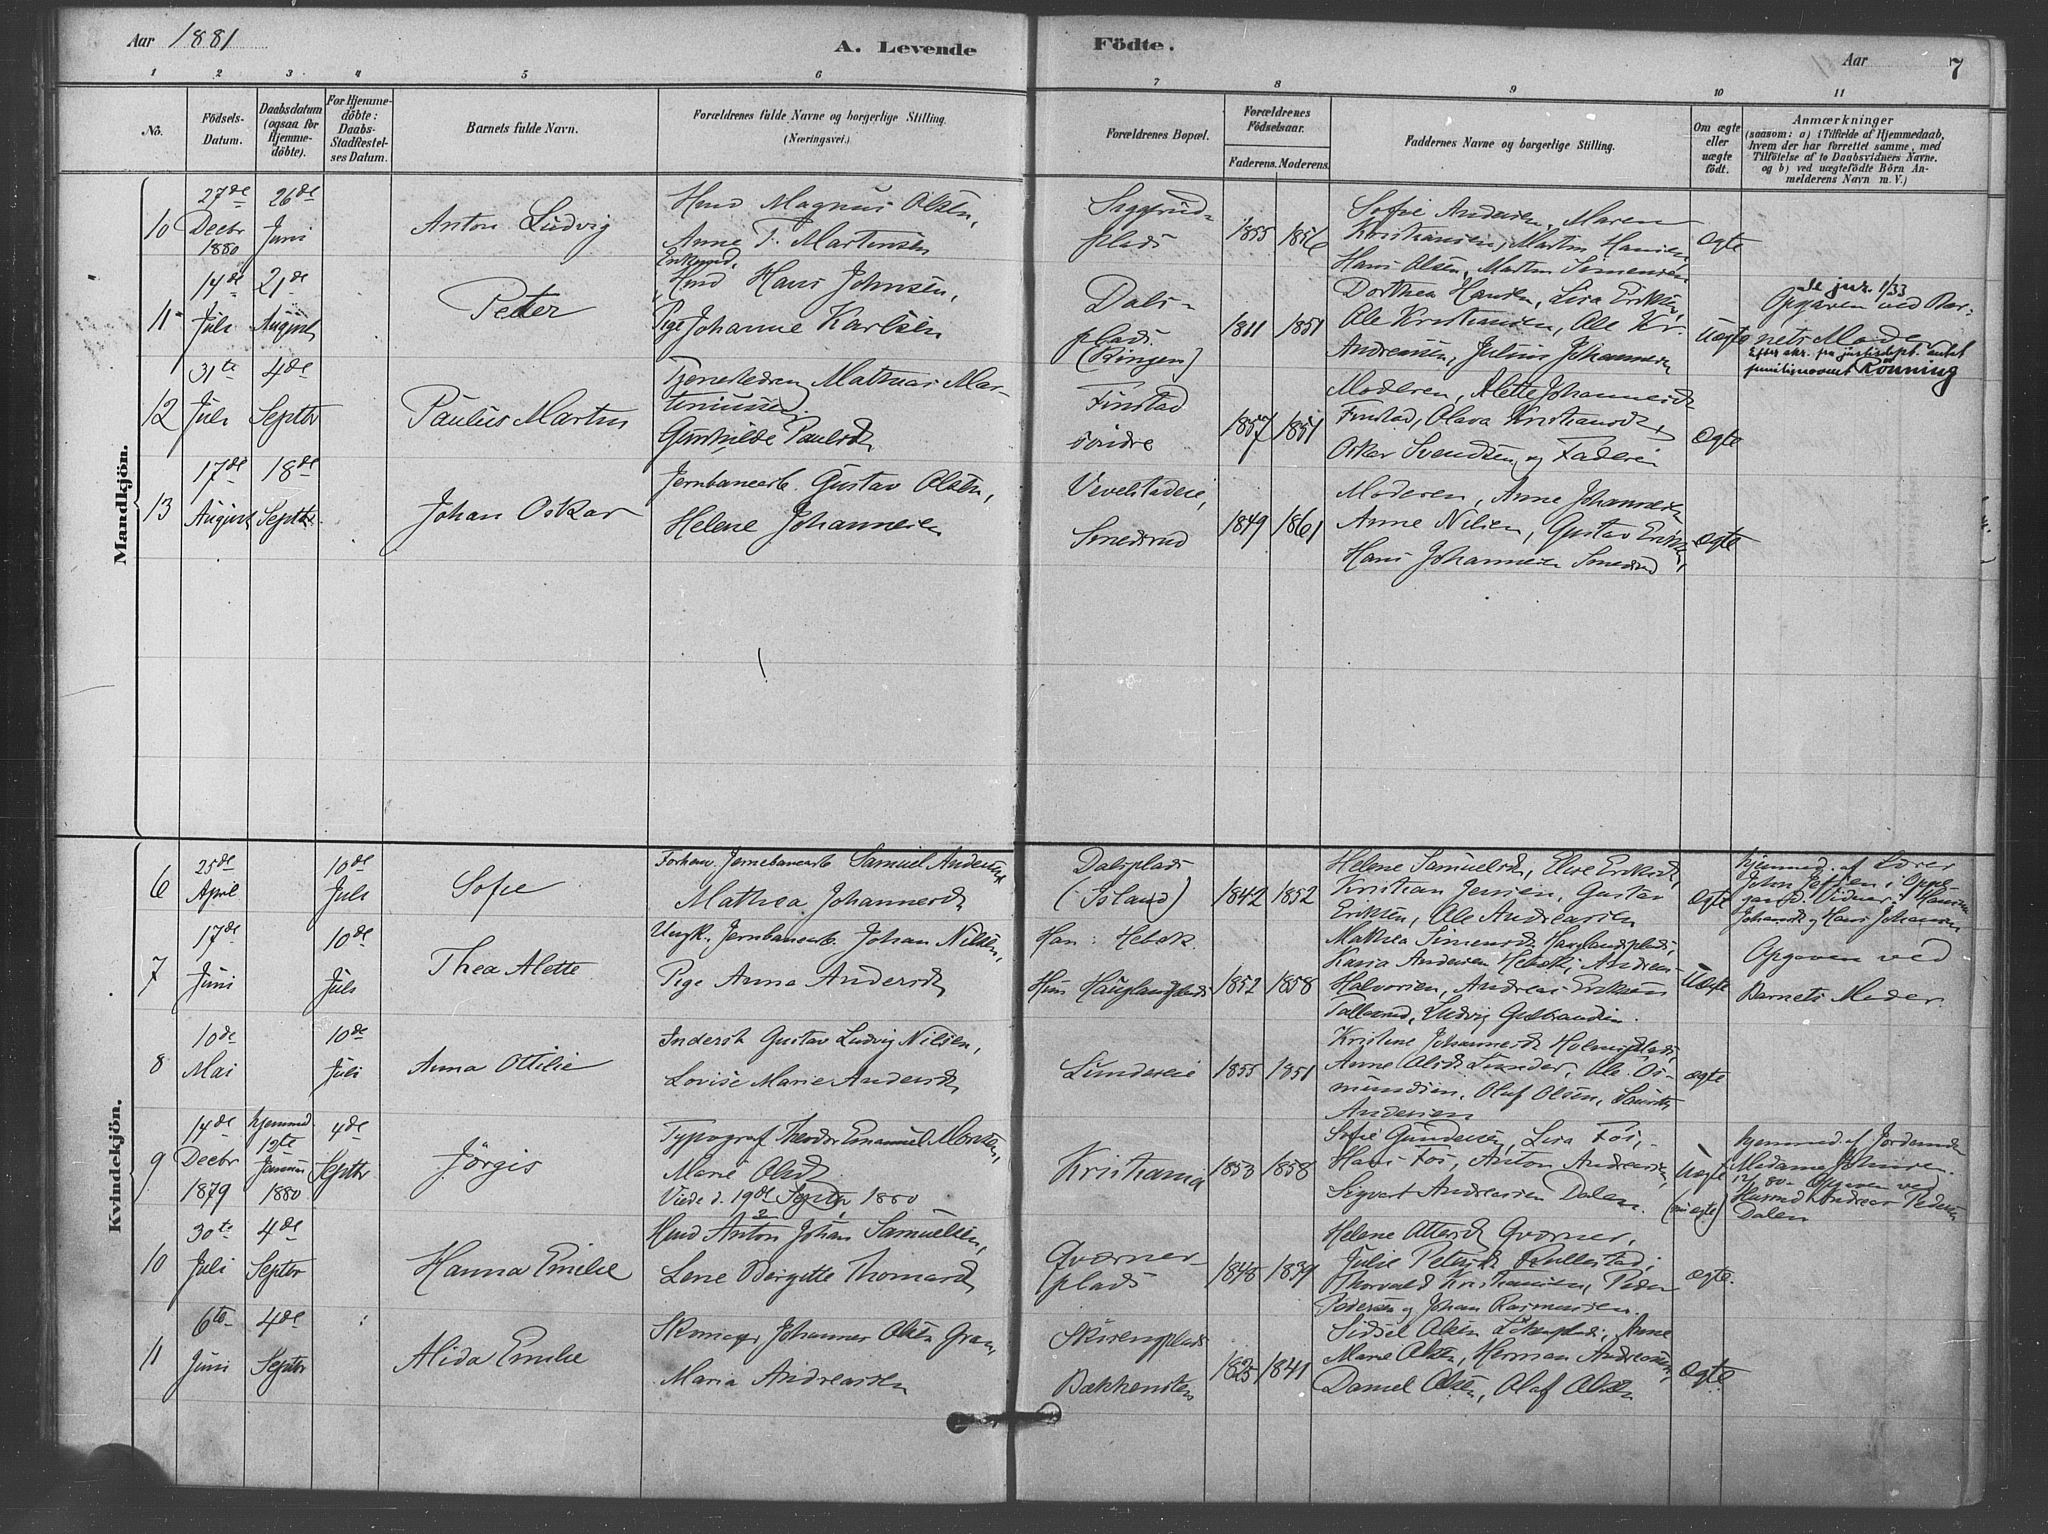 Aar 1881
A. Levende Födte.
Aar 7
1 2 3 4 5 6 7 8 9 10 11
No.
Födsels-Datum.
Daabsdatum (ogsaa for Hjemme-döbte).
For Hjemme-döbte: Daabs-Stadfæstel-ses Datum.
Barnets fulde Navn.
Forældrenes fulde Navne og borgerlige Stilling.
(Næringsvei.)
Forældrenes Bopæl.
Forældrenes Födselsaar.
Faderens. Moderens.
Faddernes Navne og borgerlige Stilling.
Om ægte eller uægte födt.
Anmærkninger
(saasom: a) i Tilfælde af Hjemmedaab,
hvem der har forrettet samme, med
Tilföielse af to Daabsvidners Navne.
og b) ved uægtefödte Börn An-
melderens Navn m. V.)
Mandkjön.
10
27de Decbr 1880
26de Juni
Anton Ludvig
Hmd Magnus Olsen,
Anne T. Martinsen
Saggrud-
plads
1855 1856
Sofie Andersen, Maren
Kristiansen, Martin Hansen
Hans Olsen, Martin Simensen
Ægte
11
14de Juli
21de August
Petter
Enkemd,
Hmd Hans Johnsen,
Pige Johanne Karlsen
Dals-
plads.
(Ringen)
1811 1851
Dorthea Hansen, Lisa Eriksen,
Ole Kristiansen, Ole Kr.
Andreassen, Julius Johannesen
Uægte
Se jur. 1/33
Opgaven ved Bar-
nets Moder
Efter skr. fra justisdept. antat
familienavnet Rönning
12
31te Juli
4de Septbr
Paulus Martin
Tjenestedreng Mathias Mar-
tiniussen.
Gunhilde Paulsd.
Finstad
söndre
1857 1851
Moderen, Alette Johannesd.
Finstad, Olava Kristiansd.,
Oskar Svendsen, og Faderen
Ægte
13
17de August
18de Septbr
Johan Oskar
Jernbanearb. Gustav Olsen,
Helene Johannesen
Vevelstadeie,
Smedsrud
1849 1861
Moderen, Anne Johannesen
Anne Nilsen, Gustav Eriksen,
Hans Johannesen Smedsrud
Ægte
Kvindekjön.
6
25de April
10de Juli
Sofie
Forhen. Jernbanearb Samuel Anderssen
Mathea Johannesd.
Dalsplads
(Island)
1842 1852
Helene Samuelsd., Elise Eriksd.,
Kristian Jensen, Gustav
Eriksen, Ole Andreassen
Ægte
Hjemmed. af Lærer
Johan Jensen, Oppe-
gaard. Vidner: Hansine
Johansd. og Hans Johansen
7
17de Juni
10de Juli
Thea Alette
Ungk. Jernbanearb. Johan Nilsen,
Pige Anna Andersd.
Han: Hebek.
Hun Hauglandplads
1852 1858
Mathea Simensd. Hauglandplads,
Karia Andersen Hebek, Andreas
Halvorsen, Andreas Eriksen
Tallerud, Ludvig Gulbrandsen.
Uægte
Opgaven ved
Barnets Moder.
8
10de Mai
10de Juli
Anna Ottilie
Inderst Gustav Ludvig Nilsen,
Lovise Marie Andersd.
Lundereie
1855 1851
Kristine Johannesd. Holmsplads,
Anne Olsd. Lunder, Ole Os-
mundsen, Olaf Olsen, Lauritz
Andersen
Ægte
9
14de Decbr 1879
hjemmed 12te Januar 1880
4de Septbr
Jörgis
Typograf Theodor Emanuel Morsten,
Marie Olsd.
Viede d. 19de Septbr, 1880
Kristiania
1853 1858
Sofie Gundersen, Lisa Fos,
Hans Fos, Anton Andreassen,
Sigvart Andreassen Dalen.
Uægte
(nu ægte)
hjemmed. af Jordemoder
Madame Johnsen.
12/1 80. Opgaven ved
Husmd Andreas Pedersen
Dalen
10
30te Juli
4de Septbr
Hanna Emilie
Hmd Anton Johan Samuelsen,
Lene Birgitte Thomasd.
Qværner-
plads
1848 1839
Helene Ottersd. Qværner,
Julie Petersd. Fullestad,
Thorvald Kristiansen, Peder
Pedersen og Johan Rasmussen.
Ægte.
11
6te Juni
4de Septbr
Alida Emilie
Skomager Johannes Olsen Gran,
Maria Andreassen
Skirengplads
Bakkensten
1825 1841
Sidsel Olsen Lökenplads, Anne
Marie Olsen, Herman Andreassen,
Daniel Olsen, Olaf Olsen
Ægte.